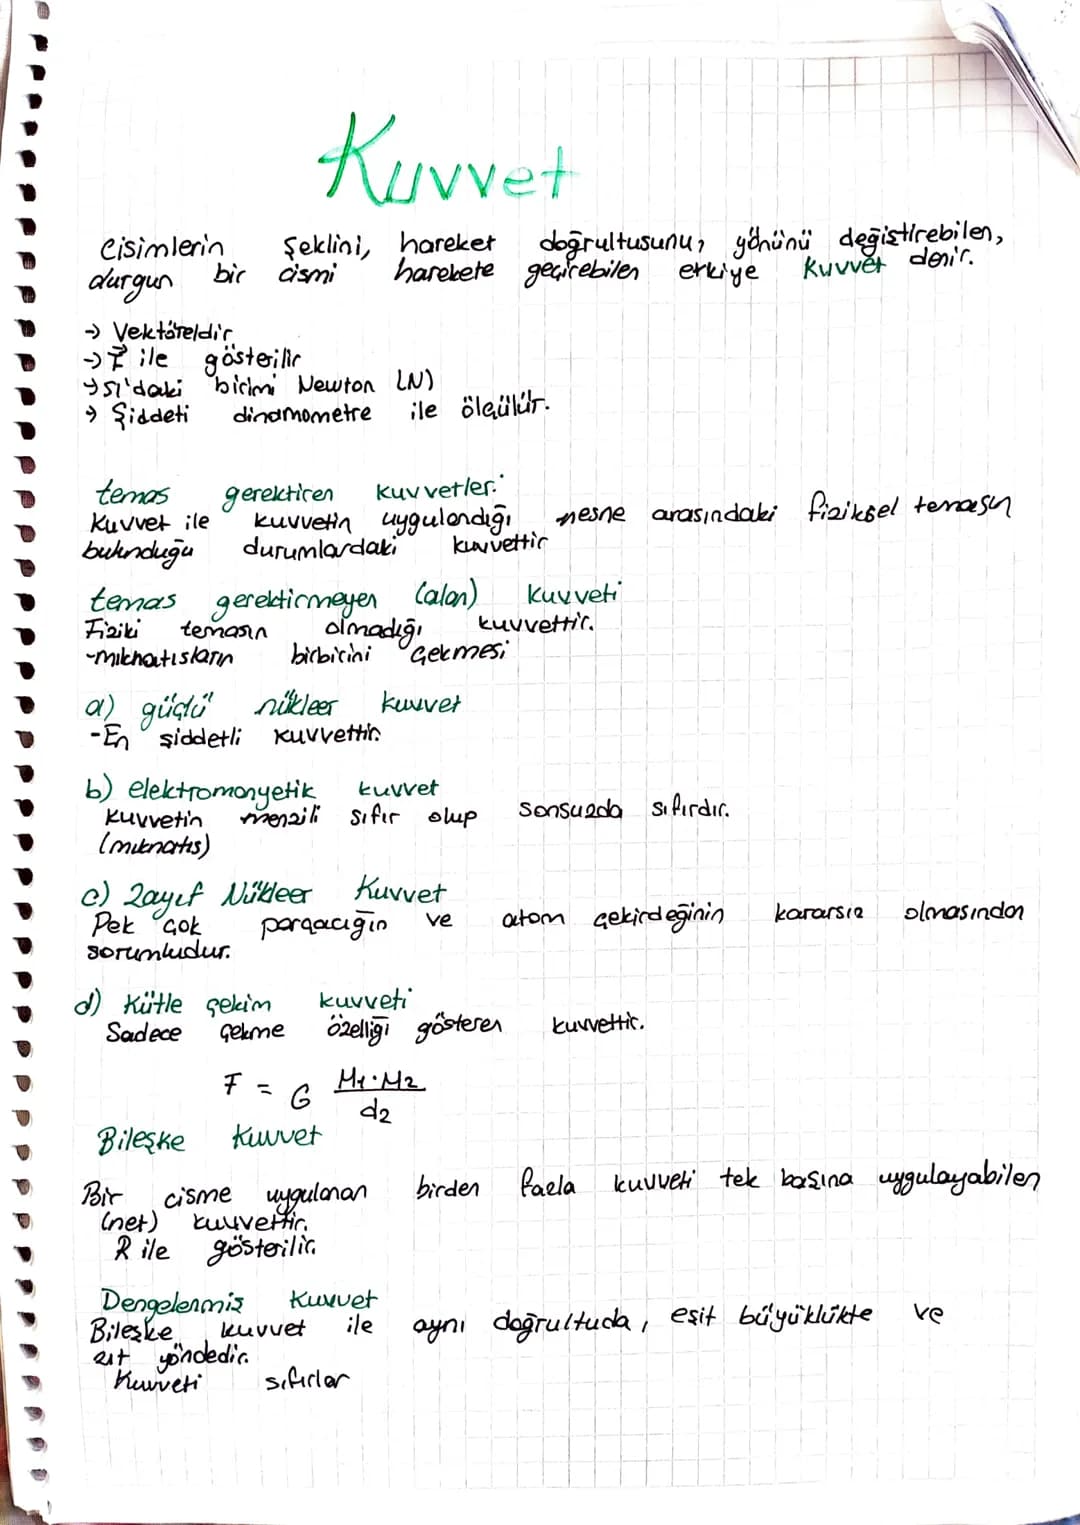 Kuvvet
Cisimlerin şeklini, hareket doğrultusunu, yönünü değiştirebilen,
durgun bir cismi harekete geçirebilen etkiye Kuvvet denir.
→ Vektöreldir
→ F ile gösterilir
→ SI'daki birimi Newton (N)
→ Şiddeti dinamometre ile ölçülür.
temas gerektiren kuvvetler:
Kuvvet ile kuvvetin uygulandığı nesne arasındaki fiziksel temasın
bulunduğu durumlardaki kuvvettir
temas gerektirmeyen (alan) kuvveti
Fiziki temasın olmadığı kuvvettir.
-mıknatısların birbirini çekmesi
a) güçlü nükleer kuvvet
-En şiddetli kuvvettir.
b) elektromanyetik kuvvet
Kuvvetin menzili sıfır olup sonsuzda sıfırdır.
(mıknatıs)
c) Zayıf Nükleer Kuvvet
Pek çok parçacığın ve atom çekirdeğinin kararsız olmasından
sorumludur.
d) Kütle çekim kuvveti
Sadece çekme özelliği gösteren kuvvettir.
F = G M1.M2 / d2
Bileşke Kuvvet
Bir cisme uygulanan birden fazla kuvveti tek başına uygulayabilen
(net) kuvvettir.
R ile gösterilir.
Dengelenmiş Kuvvet
Bileşke kuvvet ile aynı doğrultuda, eşit büyüklükte ve
zıt yöndedir.
Kuvveti sıfırlar